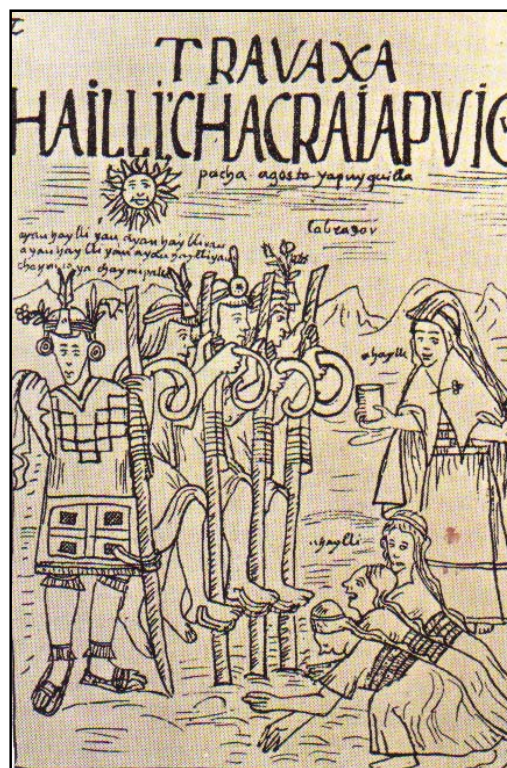 TRAVAXA
HAILLI'CHACRAIAPVIC
pacha agosto yapuyquilla
labrador
ayau haylli yau ayau haylli yau
ayau haylli yau ayau haylli yau
chaymi
ahaylli
ahaylli